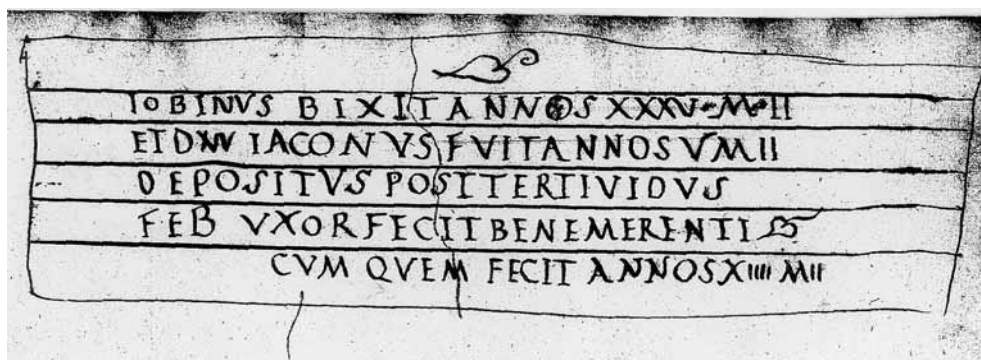 IOBINVS BIXIT ANNOS XXXV M II
ET DIACONVS FVIT ANNOS V M II
DEPOSITVS POSTTERTIVIDVS
FEB VXOR FECIT BENEMERENTI
CVM QVEM FECIT ANNOS XIIII M II